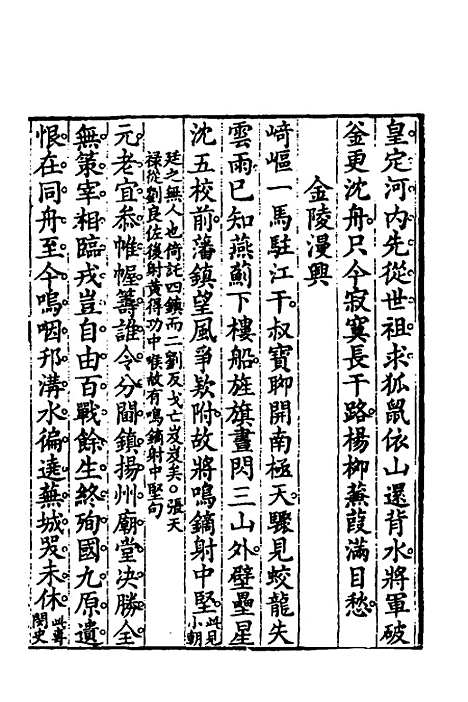 皇定河内先從世祖求狐鼠依山還背水將軍破
釜更沈舟只今寂寞長干路楊柳蒹葭滿目愁
金陵漫興
崎嶇一馬駐江干叔寶聊開南極天驟見蛟龍失
雲雨已知燕薊下樓船旌旗晝閃三山外壁壘星
沈五校前藩鎮望風爭欵附故將鳴鏑射中堅此見
小朝
廷之無人也倚託四鎮而二劉反戈亡岌岌矣。張天
祿從劉良佐後射黃得功中喉故有鳴鏑射中堅句
元老宜叅帷幄籌誰令分閫鎮揚州廟堂决勝全
無策宰相臨戎豈自由百戰餘生終殉國九原遺
恨在同舟至今嗚咽邗溝水徧遶蕪城哭未休此弔
閣史